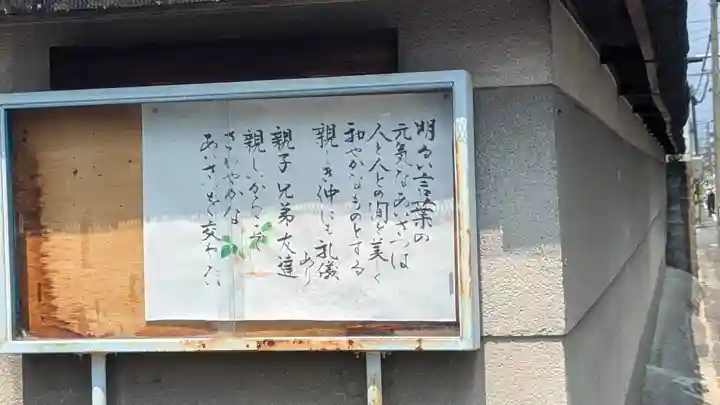 明るい言葉の
元気なあいさつは
人と人との間を美しく
和やかなものとする
親しき仲にも礼儀あり
親子 兄弟 友達
親しいからこそ
さわやかな
あいさつを交わしたい